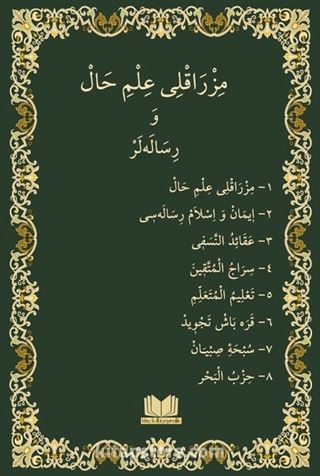 مِزْرَاقْلِى عِلْمِ حَالْ
وَ
رِسَالَەلَرْ
١- مِزْرَاقْلِى عِلْمِ حَالْ
٢- اِيمَانْ وَ اِسْلَامْ رِسَالَەسِى
٣- عَقَائِدُ النَّسَفِى
٤- سِرَاجُ الْمُتَّقِينَ
٥- تَعْلِيمُ الْمُتَعَلِّمِ
٦- قَرَە بَاشْ تَجْوِيدْ
٧- سُبْحَۀِ صِبْيَانْ
٨- حِزْبُ الْبَحْرِ